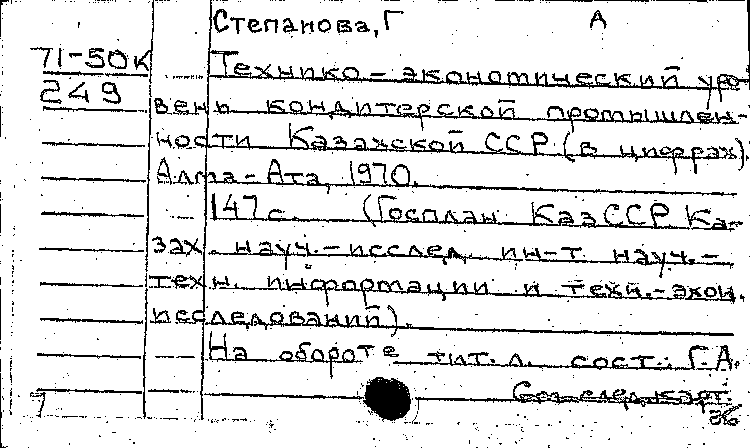 Степанова, Г А
71-50к Технико-экономический уро-
249 вень кондитерской промышлен-
ности Казахской ССР (в цифрах).
Алма-Ата, 1970.
147 с. (Госплан КазССР. Ка-
зах. науч.-исслед. ин-т науч.-
техн. информации и техн.-экон.
исследований).
На обороте тит. л. сост.: Г.А.
См. след. карт.